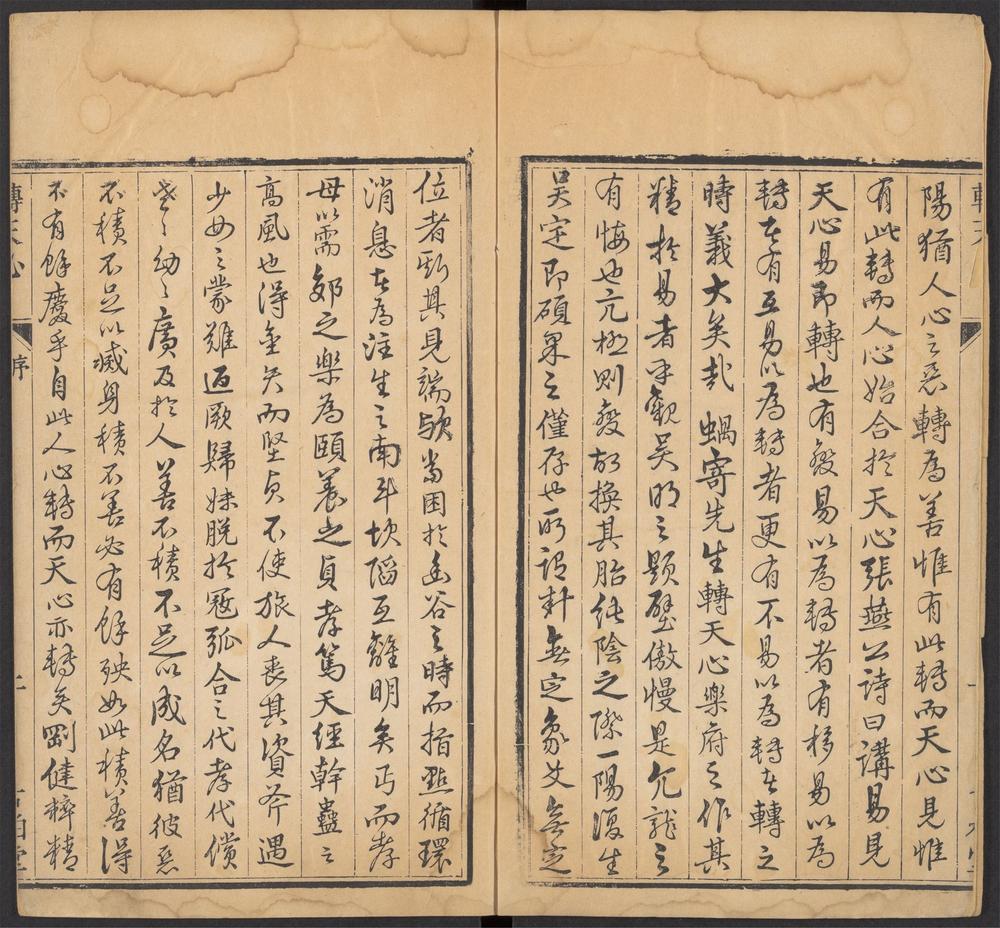 陽猶人心之惡轉為善惟有此轉而天心見惟
有此轉而人心始合於天心張燕公詩曰講易見
天心易即轉也有變易以為轉者有移易以為
轉者有互易以為轉者更有不易以為轉者轉之
時義大矣哉蝸寄先生轉天心樂府之作其
精於易者乎觀吳明之題壁傲慢是亢龍之
有悔也亢極則變故換其胎純陰之際一陽復生
吳定即碩果之僅存也所謂卦無定象爻無定
位者斯其見端歟當困於幽谷之時而指點循環
消息者為注生之南斗坎陷互離明矣丐而孝
母以需郊之樂為頤養之貞孝篤天經幹蠱之
高風也得金矢而堅貞不使旅人喪其資斧遇
少女之蒙難迺厥歸妹脫於寇弧合之代孝代償
老老幼幼廣及於人善不積不足以成名猶彼惡
不積不足以滅身積不善必有餘殃如此積善得
不有餘慶乎自此人心轉而天心亦轉矣剛健粹精
轉天心
序
二
古柏堂